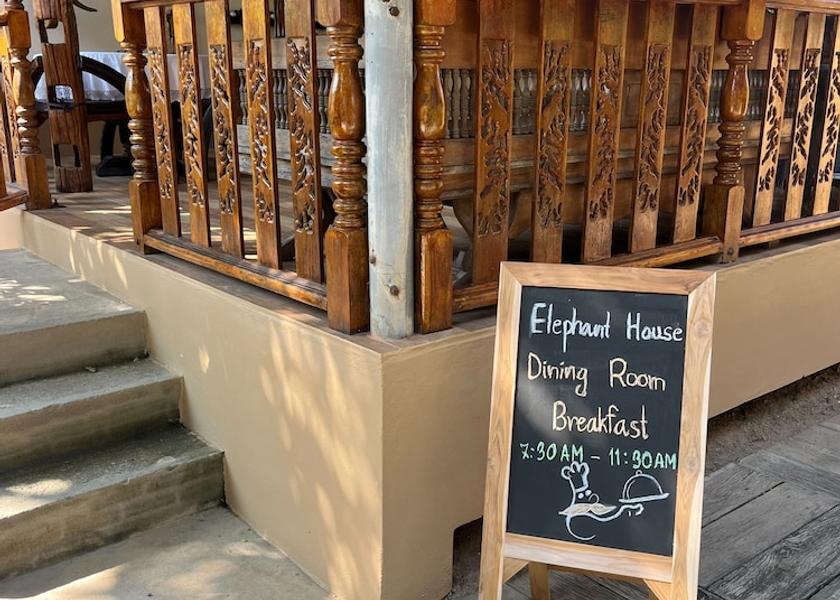 Elephant House
Dining Room
Breakfast
7:30 AM - 11:30 AM